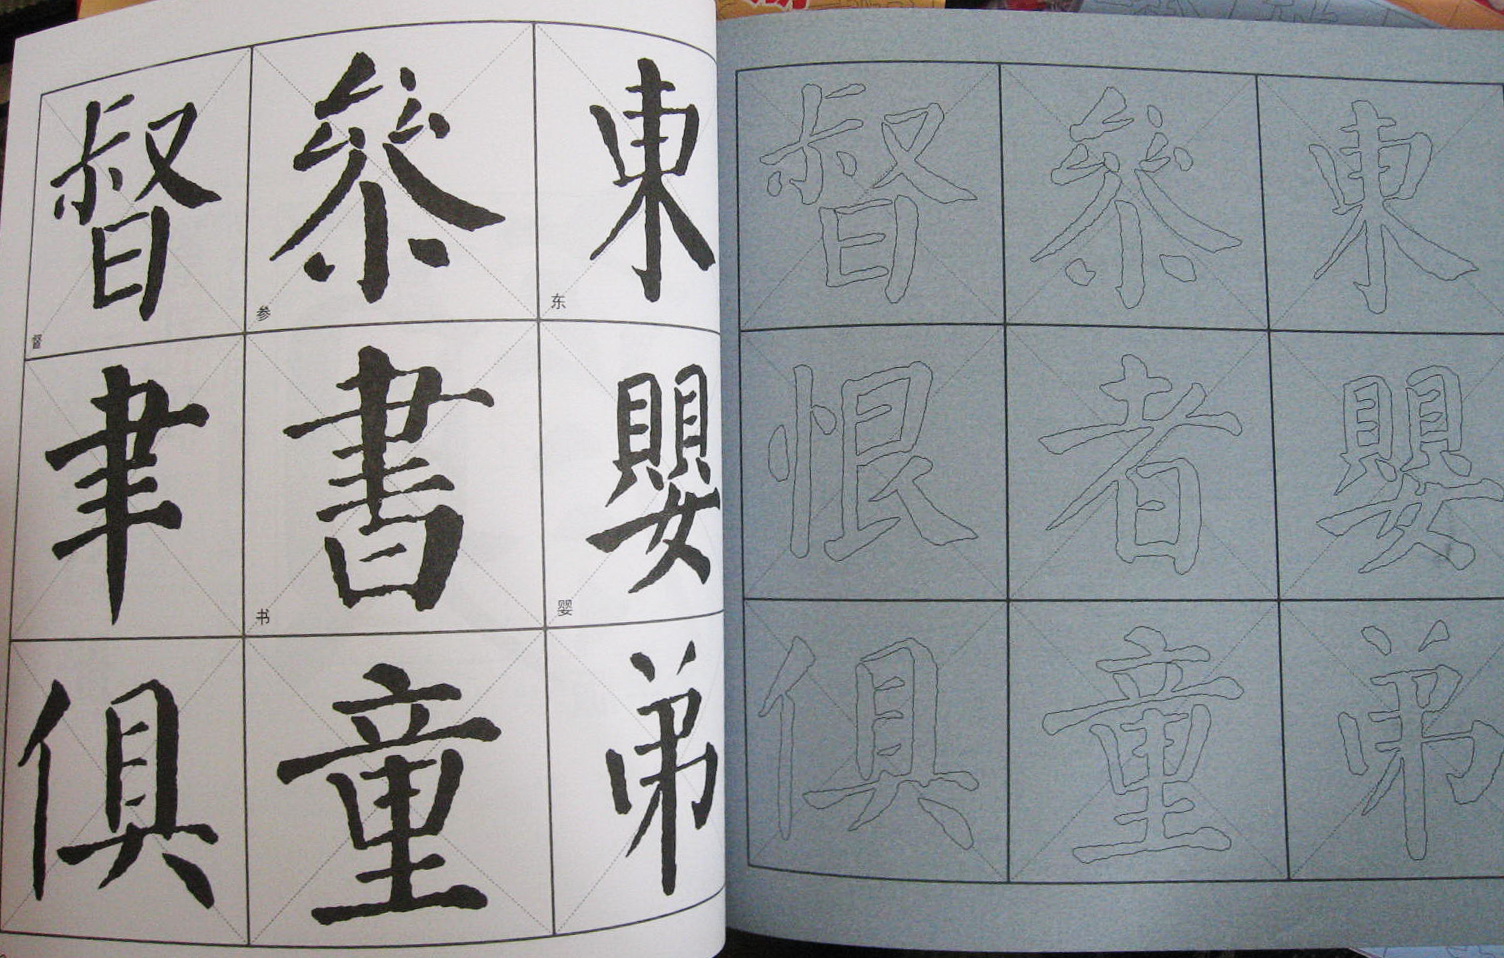 督 參 東
督 参 东
聿 書 嬰
书 婴
俱 童 弟
督 參 東
恨 者 嬰
俱 童 弟